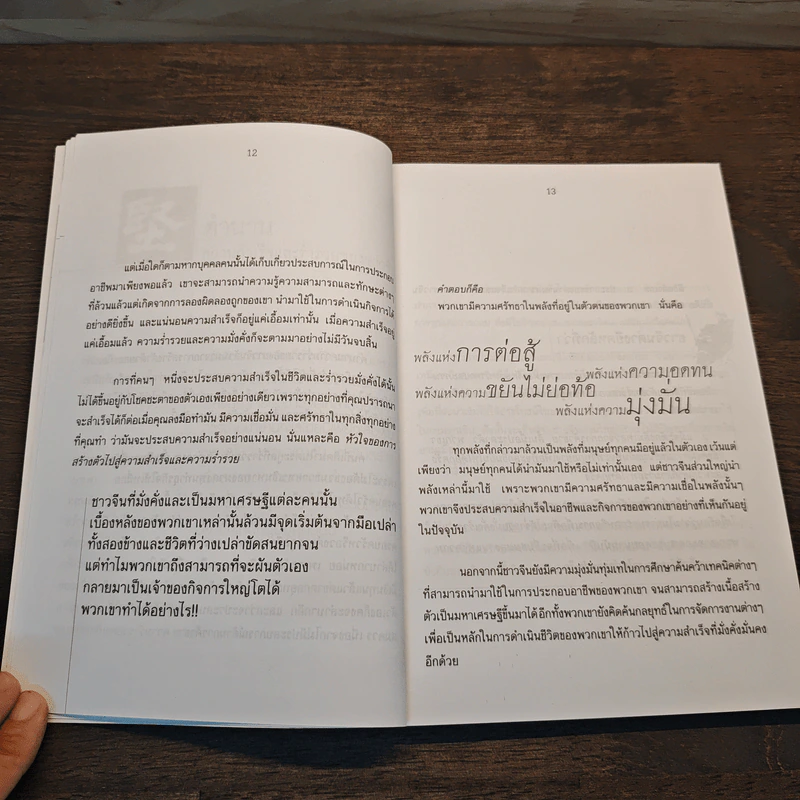 12
แต่เมื่อใดก็ตามหากบุคคลคนนั้นได้เก็บเกี่ยวประสบการณ์ในการประกอบ
อาชีพมาเพียงพอแล้ว เขาจะสามารถนำความรู้ความสามารถและทักษะต่างๆ
ที่ล้วนแล้วแต่เกิดจากการลองผิดลองถูกของเขา นำมาใช้ในการดำเนินกิจการได้
อย่างดียิ่งขึ้น และแน่นอนความสำเร็จก็อยู่แค่เอื้อมเท่านั้น เมื่อความสำเร็จอยู่
แค่เอื้อมแล้ว ความร่ำรวยและความมั่งคั่งก็จะตามมาอย่างไม่มีวันจบสิ้น
การที่คนๆ หนึ่งจะประสบความสำเร็จในชีวิตและร่ำรวยมั่งคั่งได้นั้น
ไม่ได้ขึ้นอยู่กับโชคชะตาของตัวเองเพียงอย่างเดียวเพราะทุกอย่างที่คุณปรารถนา
จะสำเร็จได้ก็ต่อเมื่อคุณลงมือทำมัน มีความเชื่อมั่น และศรัทธาในทุกสิ่งทุกอย่าง
ที่คุณทำ ว่ามันจะประสบความสำเร็จอย่างแน่นอน นั่นแหละคือ หัวใจของการ
สร้างตัวไปสู่ความสำเร็จและความร่ำรวย
ชาวจีนที่มั่งคั่งและเป็นมหาเศรษฐีแต่ละคนนั้น
เบื้องหลังของพวกเขาเหล่านั้นล้วนมีจุดเริ่มต้นจากมือเปล่า
ทั้งสองข้างและชีวิตที่ว่างเปล่าขัดสนยากจน
แต่ทำไมพวกเขาถึงสามารถที่จะผันตัวเอง
กลายมาเป็นเจ้าของกิจการใหญ่โตได้
พวกเขาทำได้อย่างไร!!
13
คำตอบก็คือ
พวกเขามีความศรัทธาในพลังที่อยู่ในตัวตนของพวกเขา นั่นคือ
พลังแห่งการต่อสู้
พลังแห่งความอดทน
พลังแห่งความขยันไม่ย่อท้อ
พลังแห่งความมุ่งมั่น
ทุกพลังที่กล่าวมาล้วนเป็นพลังที่มนุษย์ทุกคนมีอยู่แล้วในตัวเอง เว้นแต่
เพียงว่า มนุษย์ทุกคนได้นำมันมาใช้หรือไม่เท่านั้นเอง แต่ชาวจีนส่วนใหญ่นำ
พลังเหล่านี้มาใช้ เพราะพวกเขามีความศรัทธาและมีความเชื่อในพลังนั้นๆ
พวกเขาจึงประสบความสำเร็จในอาชีพและกิจการของพวกเขาอย่างที่เห็นกันอยู่
ในปัจจุบัน
นอกจากนี้ชาวจีนยังมีความมุ่งมั่นทุ่มเทในการศึกษาค้นคว้าเทคนิคต่างๆ
ที่สามารถนำมาใช้ในการประกอบอาชีพของพวกเขา จนสามารถสร้างเนื้อสร้าง
ตัวเป็นมหาเศรษฐีขึ้นมาได้ อีกทั้งพวกเขายังคิดค้นกลยุทธ์ในการจัดการงานต่างๆ
เพื่อเป็นหลักในการดำเนินชีวิตของพวกเขาให้ก้าวไปสู่ความสำเร็จที่มั่งคั่งมั่นคง
อีกด้วย